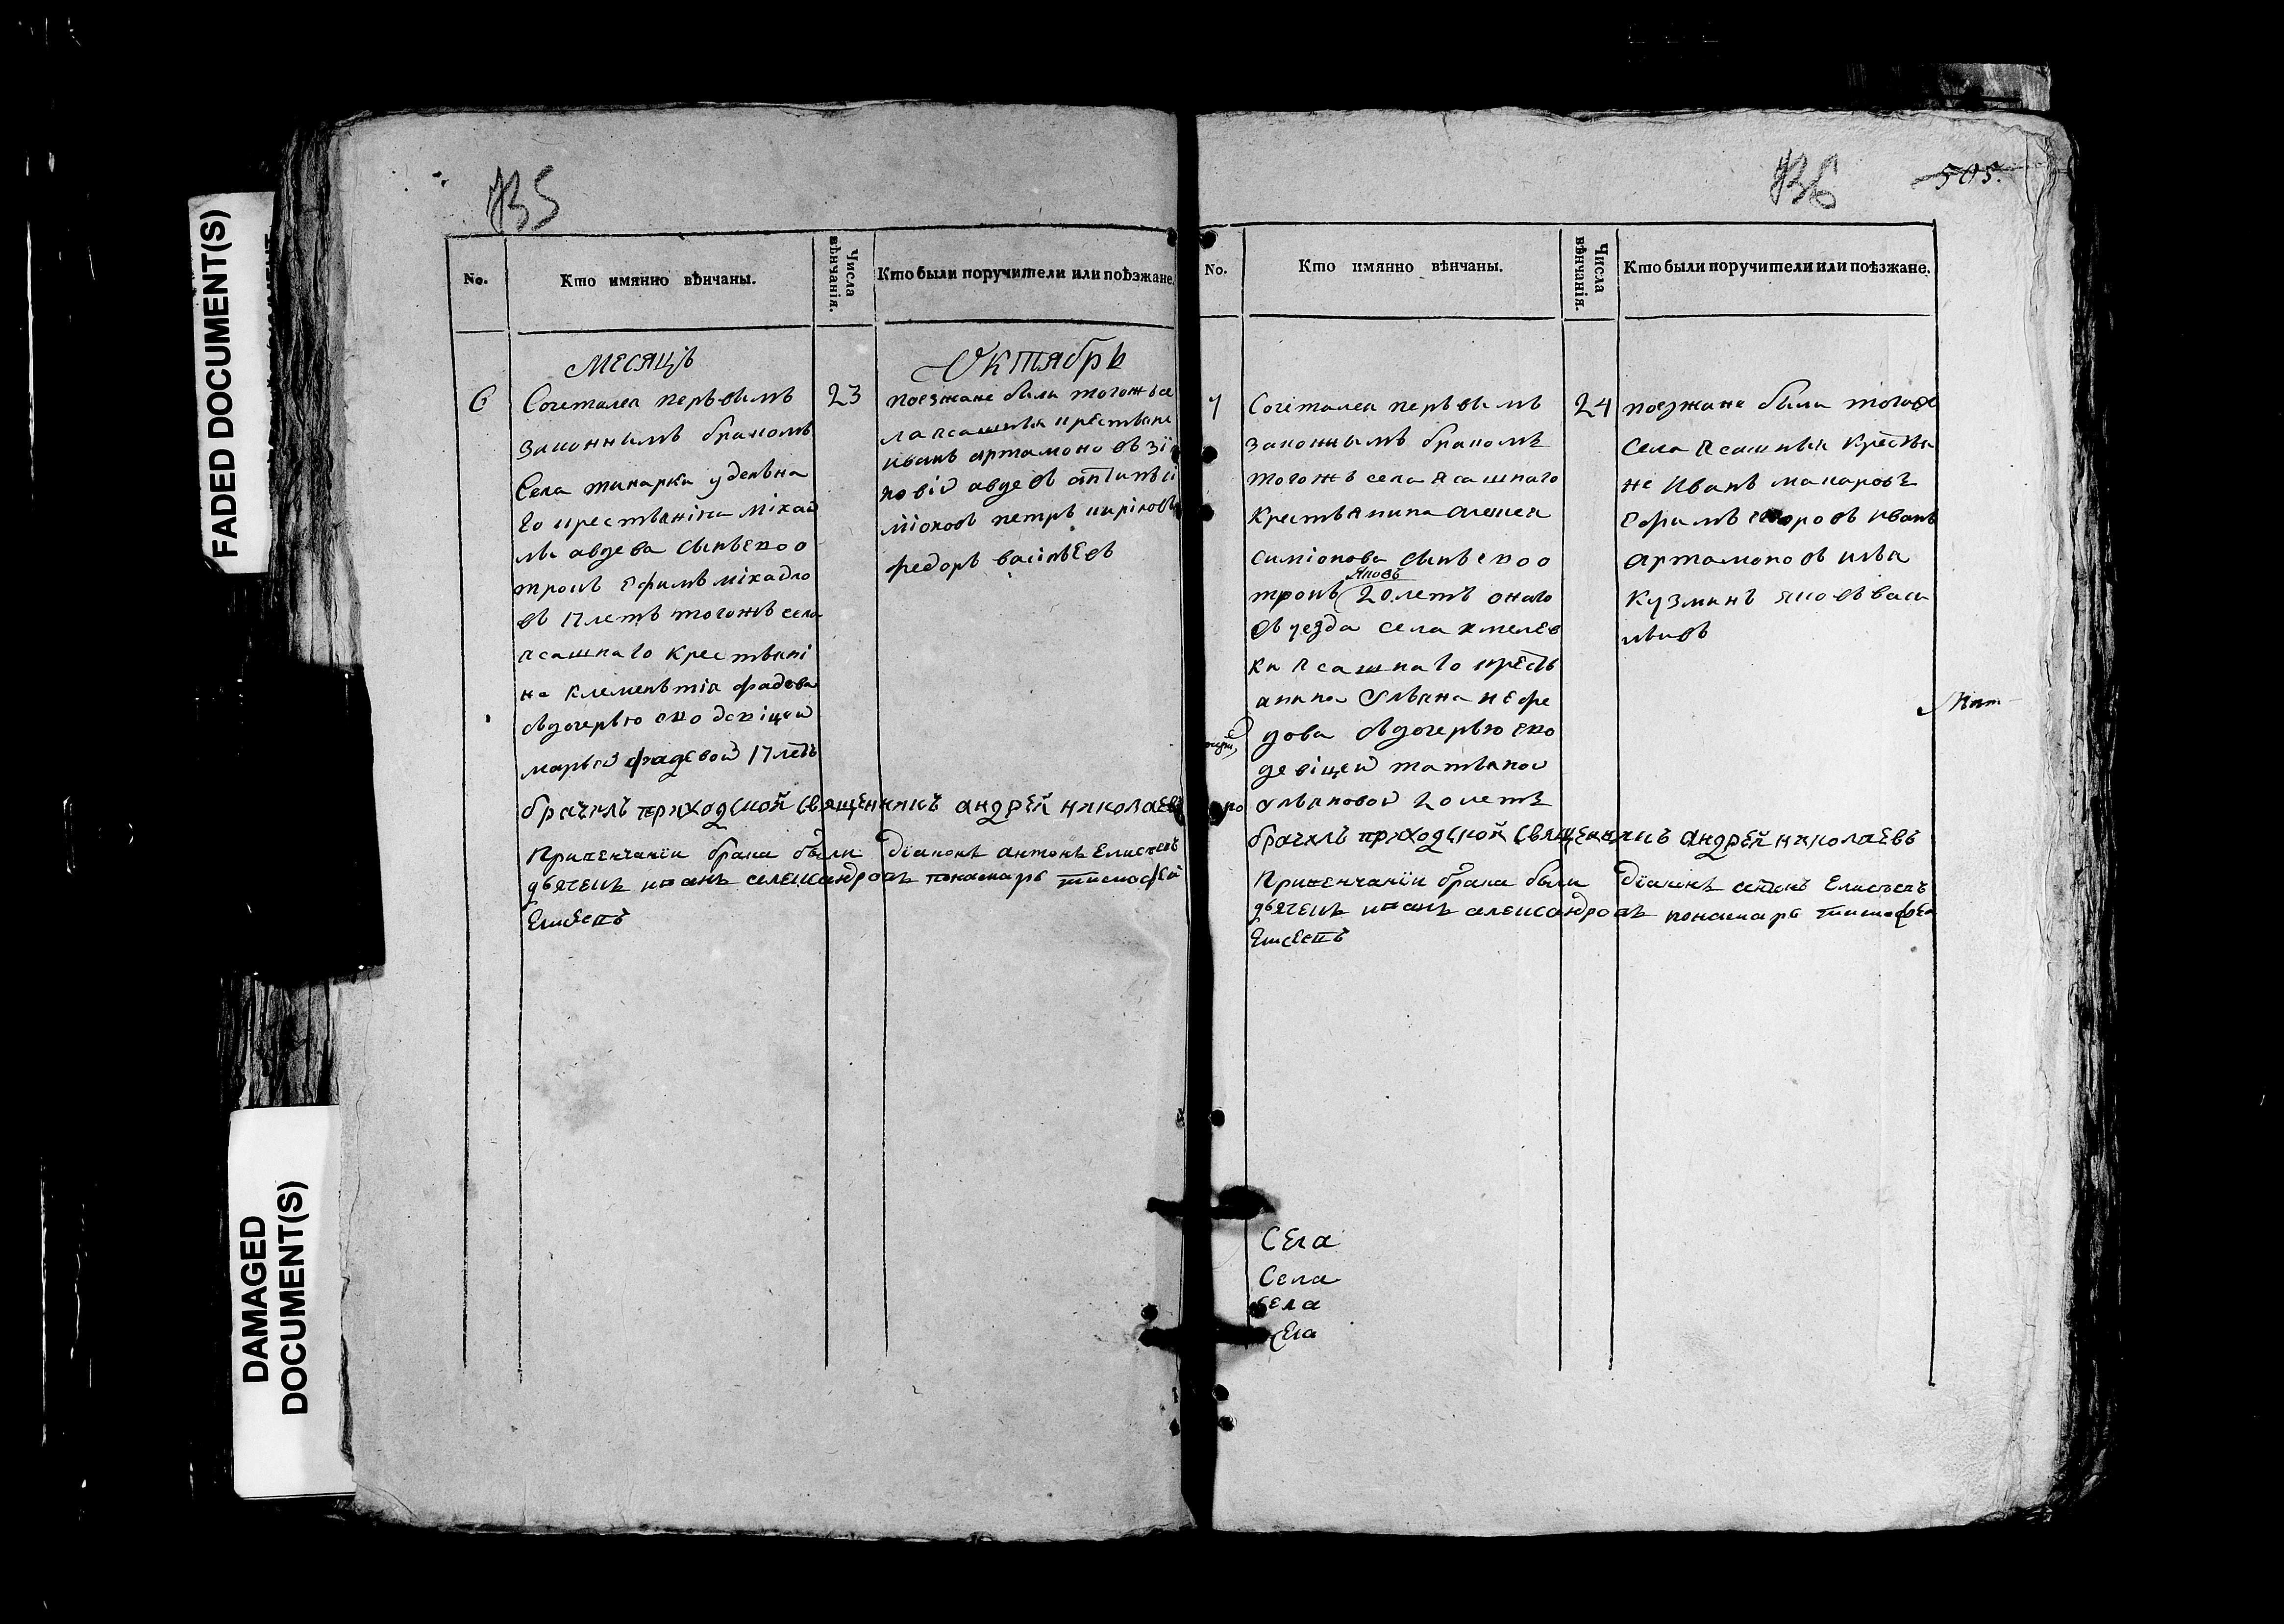 FADED DOCUMENT(S)
DAMAGED
DOCUMENT(S)
735
No.
Кто имянно вѣнчаны.
Числа
вѣнчанія.
Кто были поручители или поѣзжане.
месяцъ
Октябрь
6
Сочетался перьвымъ
законнымъ бракомъ
Села тинарки удельна
го крестьянина міхаи
лы авдева сынъ ево о
трокъ ефимъ міхаило
въ 17 летъ тогожъ села
ясашнаго крестьяні
на клеменьтія фадева
здочерью ево девіцеи
марьеи фадевои 17 летъ
23
поезжане были тогожъ се
ла ясашныя крестьяне
иванъ артамоновъ зі
новіи авдевъ
петръ кириловъ
федоръ васильевъ
брачилъ приходской священникъ андрей николаевъ
При венчаніи брака были діаконъ антонъ Елисеевъ
дьячекъ иванъ александровъ понамарь тимофей
Елисеевъ
736
505.
No.
Кто имянно вѣнчаны.
Числа
вѣнчанія.
Кто были поручители или поѣзжане.
7
Сочетался перьвымъ
законнымъ бракомъ
тогожъ села ясашнаго
крестьянина алексея
симіонова сынъ ево о
яковъ
трокъ 20 летъ онаго
села хмелев
ки ясашнаго кресть
янина ульяна нефе
дова здочерью ево
девіцеи татьянои
ульяновои 20 летъ
24
поезжане были тогоже
села ясашныя крестья
не иванъ макаровъ
ефимъ иванъ
артамоновъ илья
кузминъ яковъ васи
льивъ
брачилъ приходской священникъ андрей николаевъ
При венчаніи брака были діаконъ антонъ Елисеевъ
дьячекъ иванъ александровъ понамарь тимофей
Елисеевъ
Села
Села
Села
Села